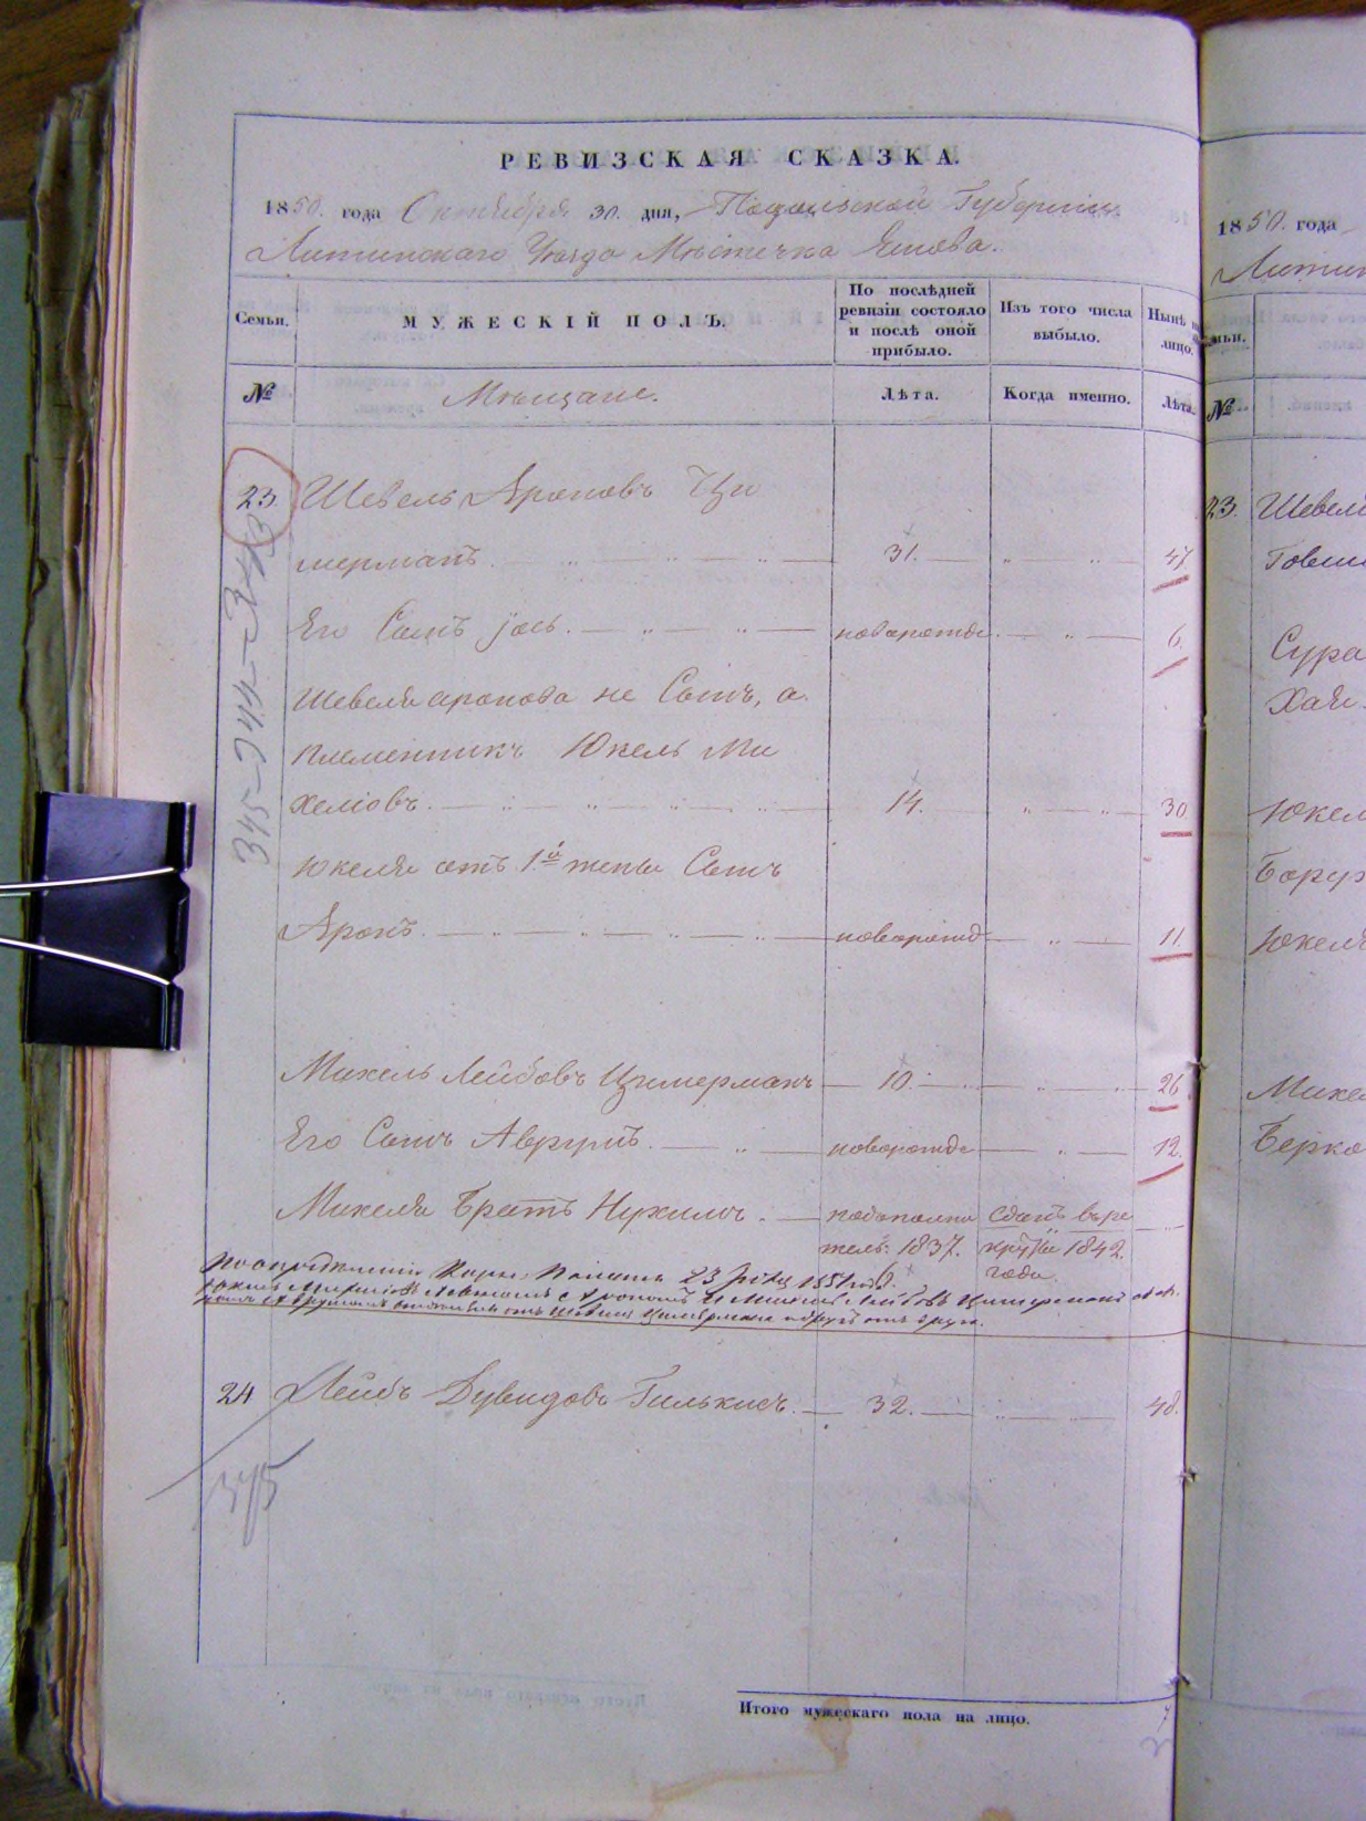 РЕВИЗСКАЯ СКАЗКА.
1850. года Октября 30. дня, Подольской Губерніи
Литинскаго Уѣзда Мѣстечка Янова.
Семьи. МУЖЕСКІЙ ПОЛЪ. По послѣдней ревизіи состояло и послѣ оной прибыло. Изъ того числа выбыло. Нынѣ на лицо.
№ Мѣщане. Лѣта. Когда именно. Лѣта.
23. Шевель Ароновъ Ци
мерманъ. 31. 47
Его Сынъ Іось. новорожде. 6.
Шевеля аронова не Сынъ, а
племенникъ Юкель Ми
хеліовъ. 14. 30
Юкеля отъ 1й жены Сынъ
Аронъ. новорожд 11.
Михель Лейбовъ Цимерманъ 10. 26
Его Сынъ Аврумъ. новорожде 12.
Михеля Братъ Нухимъ. подополни сданъ въ ре
тель: 1837. круты 1842.
6. года
По опредѣленію Казен. Палаты 23
24 Лейбъ Дувидовъ Гилькисъ. 32. 48.
345
345–344–343
Итого мужескаго пола на лицо. 7
1850. года
Литин
№
23. Шевел
Сура
Хая.
Юкел
Борух
Юкел
Михе
Берко